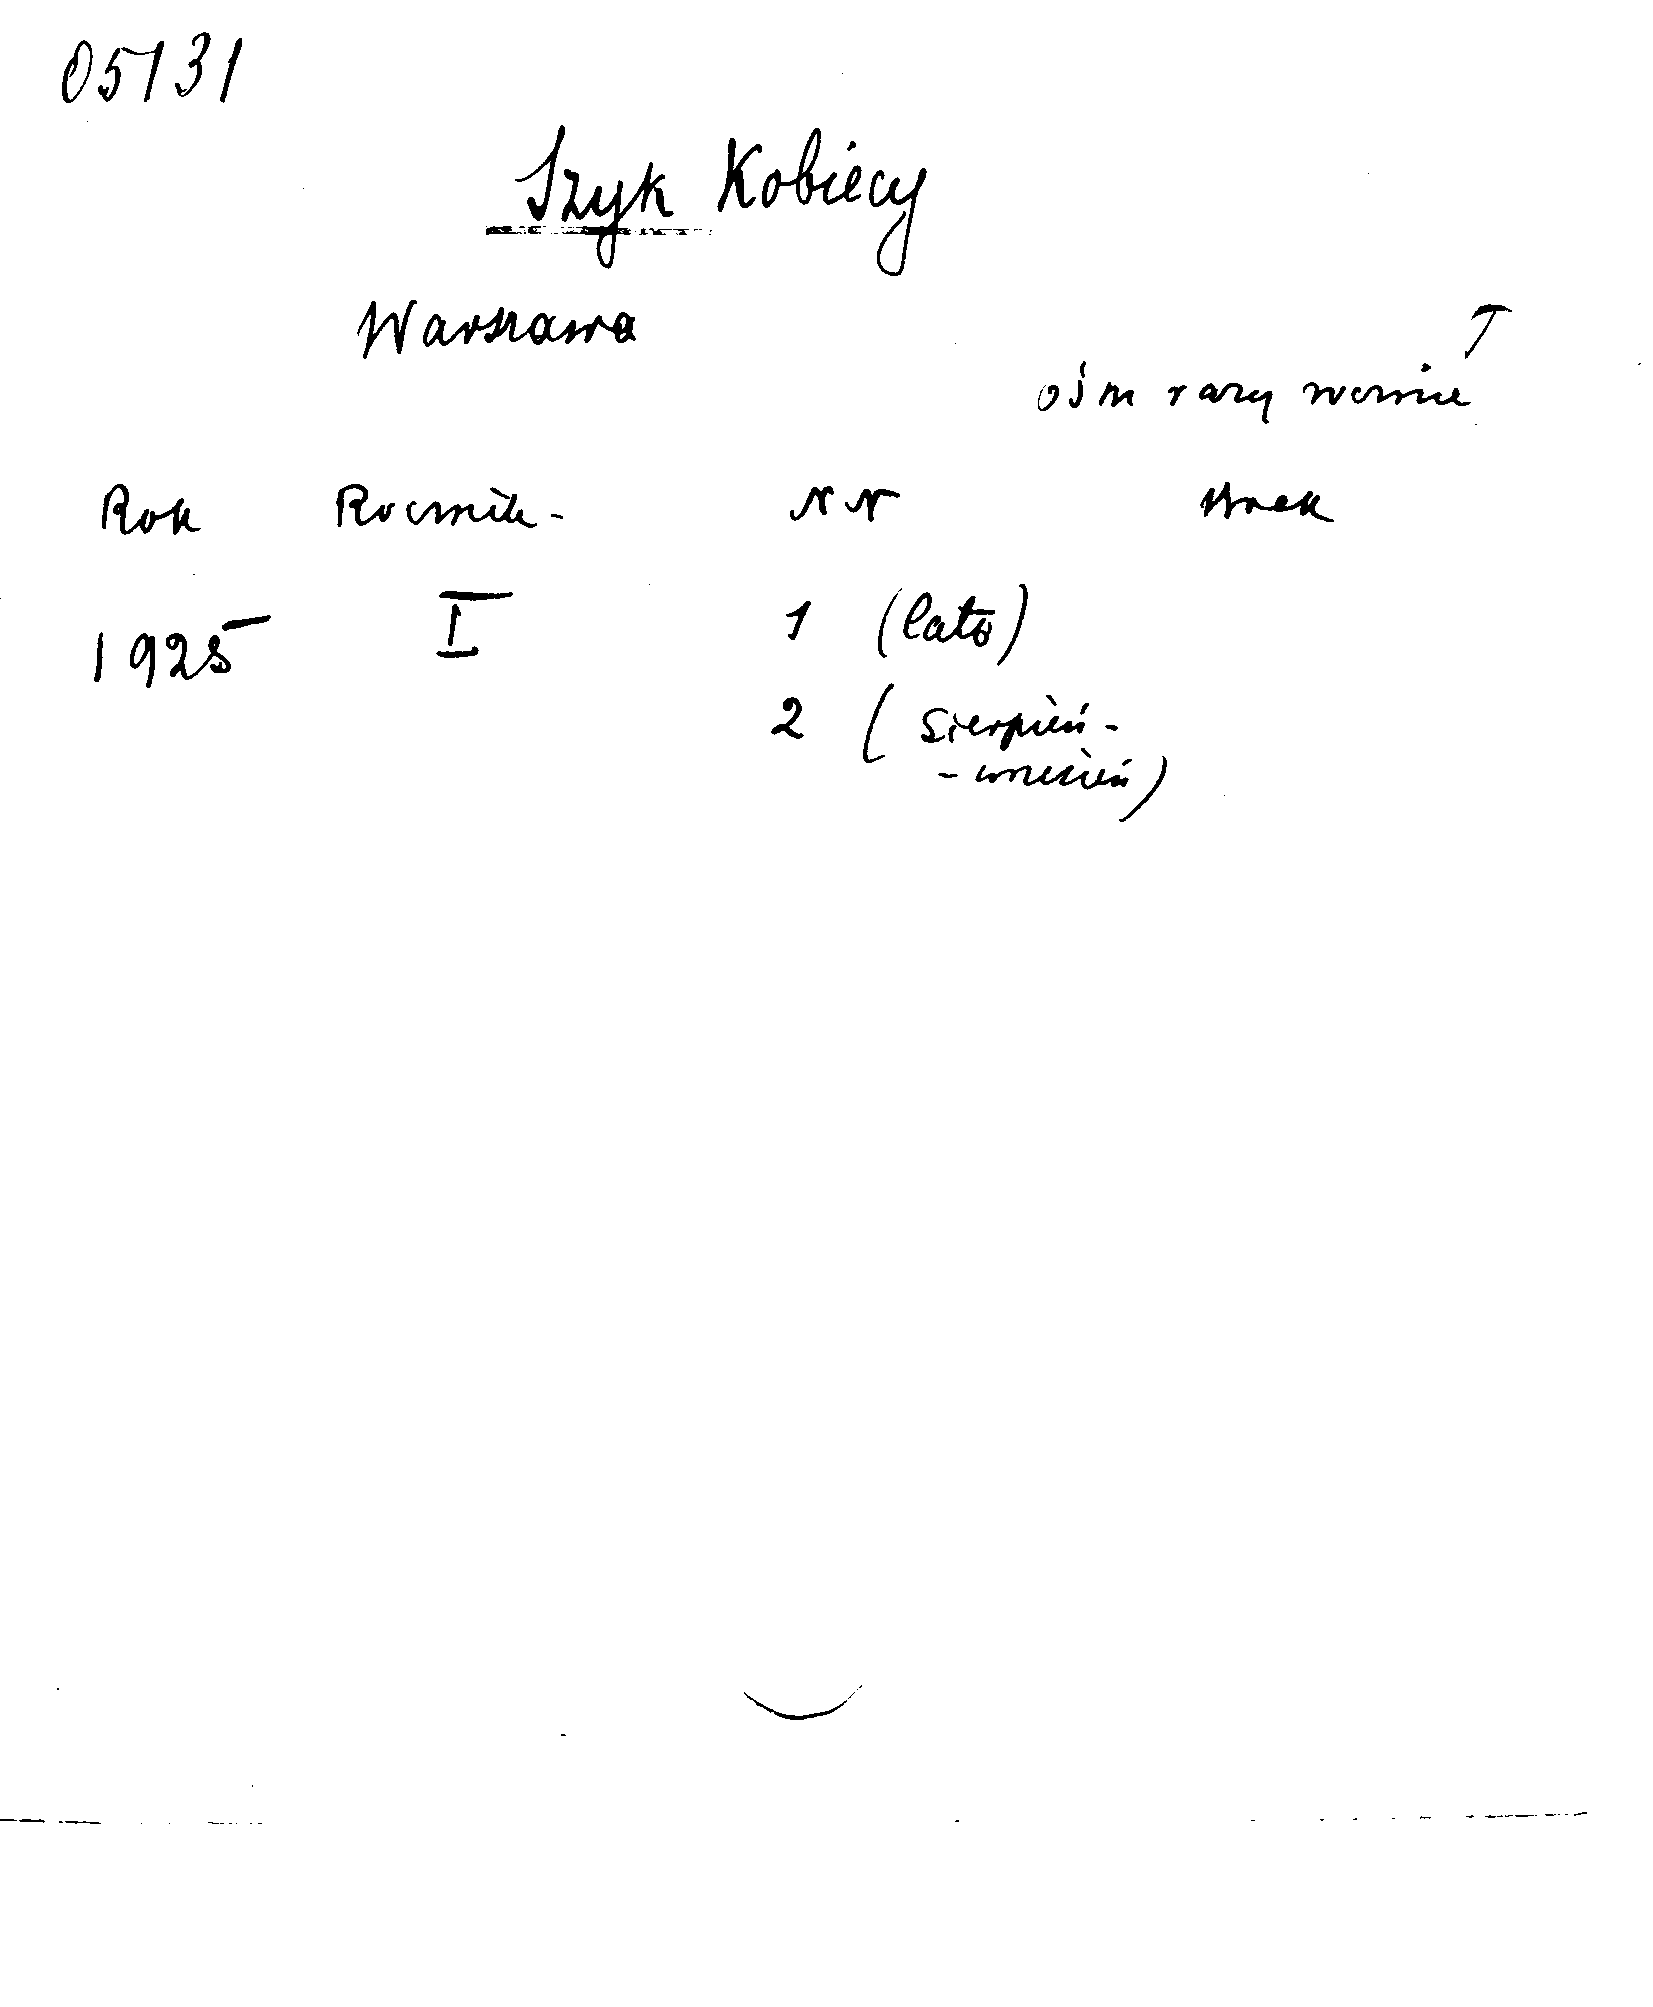 05131
Szyk Kobiecy
Warszawa
ośm razy rocznie
Rok Rocznik- NN brak
1925 I 1 (lato)
2 (sierpień-
-wrzesień)